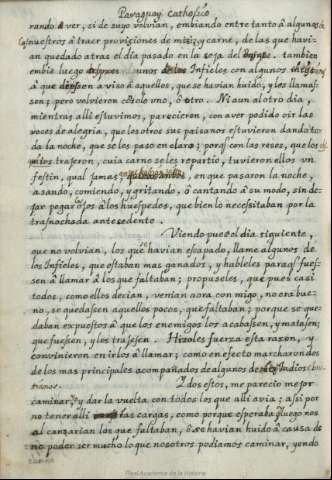 Paraguay Catholico
rando à ver, si de suyo volvian, embiando entre tanto â algunos
nuestros â traer provisiones de maiz, y carne, de las que havi-
an quedado atras el dia pasado en la sesa del tambien
embie luego algunos de los Infieles con algunos
â que diessen a viso â aquellos, que se havian huido, y los llamas-
sen; pero volvieron con solo uno, ô otro. Ni aun al otro dia,
mientras alli estuvimos, parecieron, con aver podido oir las
voces de alegria, que los otros sus paisanos estuvieron dando to-
da la noche, que se les paso en claro; porq̃ con las reses, que los
trajeron, cuia carne se les repartio, tuvieron ellos un
festin, qual jamas en que pasaron la noche,
asando, comiendo, y gritando, ô cantando â su modo, sin de-
jar pegar ojos â los huespedes, que bien lo necessitaban por la
trasnochada antesedente.
Viendo pues el dia siguiente,
que no volvian, los que havian escapado, llame algunos de
los Infieles, que estaban mas ganados, y hableles paraq̃ fues-
sen â llamar â los que faltaban; propuseles, que pues casi
todos, como ellos decian, venian aora con migo, no era bue-
no, se quedassen aquellos pocos, que faltaban; porque se que-
daban expuestos â que los enemigos los acabassen, y matassen;
que fuessen, y los trajesen. Hizoles fuerza esta razon, y
convinieron en irlos â llamar; como en efecto marcharon dos
de los mas principales acompañados de algunos de Indios
tianos.
Idos estos, me parecio mejor
caminar, y dar la vuelta con todos los que alli avia; assi por
no tener alli las cargas, como porque esperaba, luego nos
alcanzarian los que faltaban, ô se havian huido â causa de
no poder ser mucho lo que nosotros podiamos caminar, yendo
Real Academia de la Historia